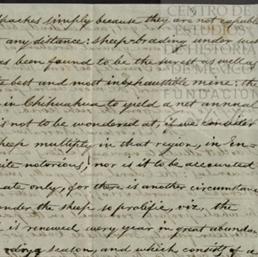 CENTRO DE
ESTUDIOS
DE HISTORIA
DE MEXICO
FUNDACIÓN
Apaches simply because they are not capable
any distance: sheep-breeding under such
as been found to be the surest as well as
the best and most inexhaustible mine; the
in Chihuahua to yield a net annual
is not to be wondered at, if we consider
sheep multiply in that region, is en-
ite notorious; nor is it to be accounted
ate only, for there is another circumstance
under the sheep so prolific, viz, the
is renewed every year in great abun
season, and which consists of a